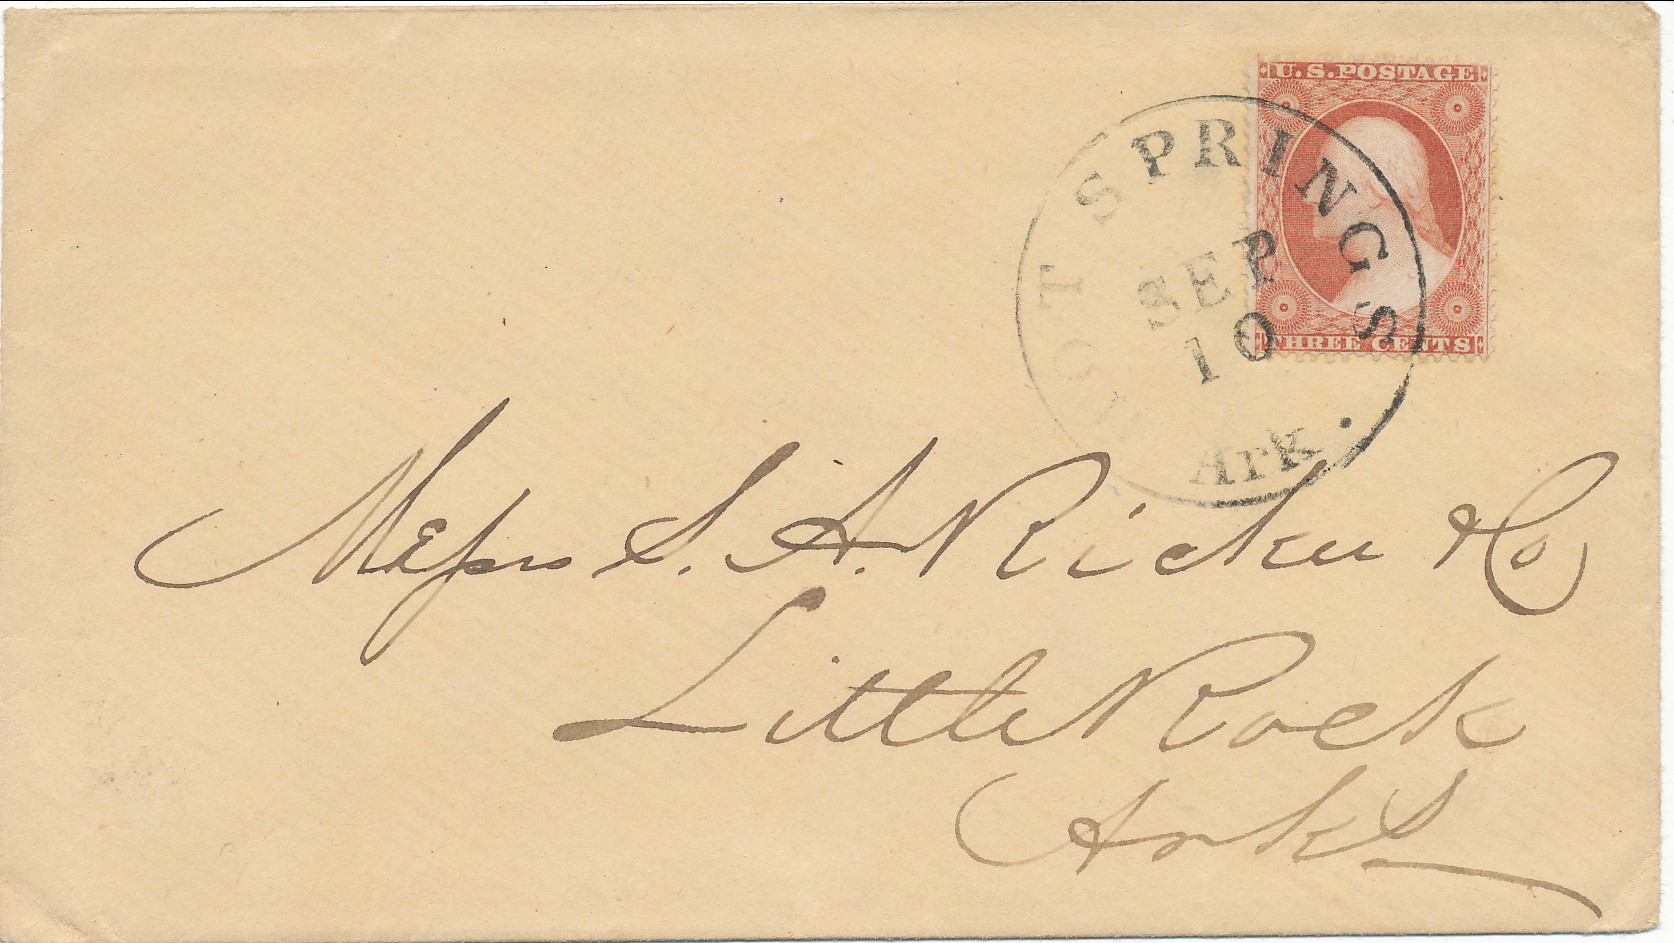 U.S. POSTAGE
HOT SPRINGS
SEP
10
Ark.
THREE CENTS
Messrs S. A. Ricker & Co
Little Rock
Arks